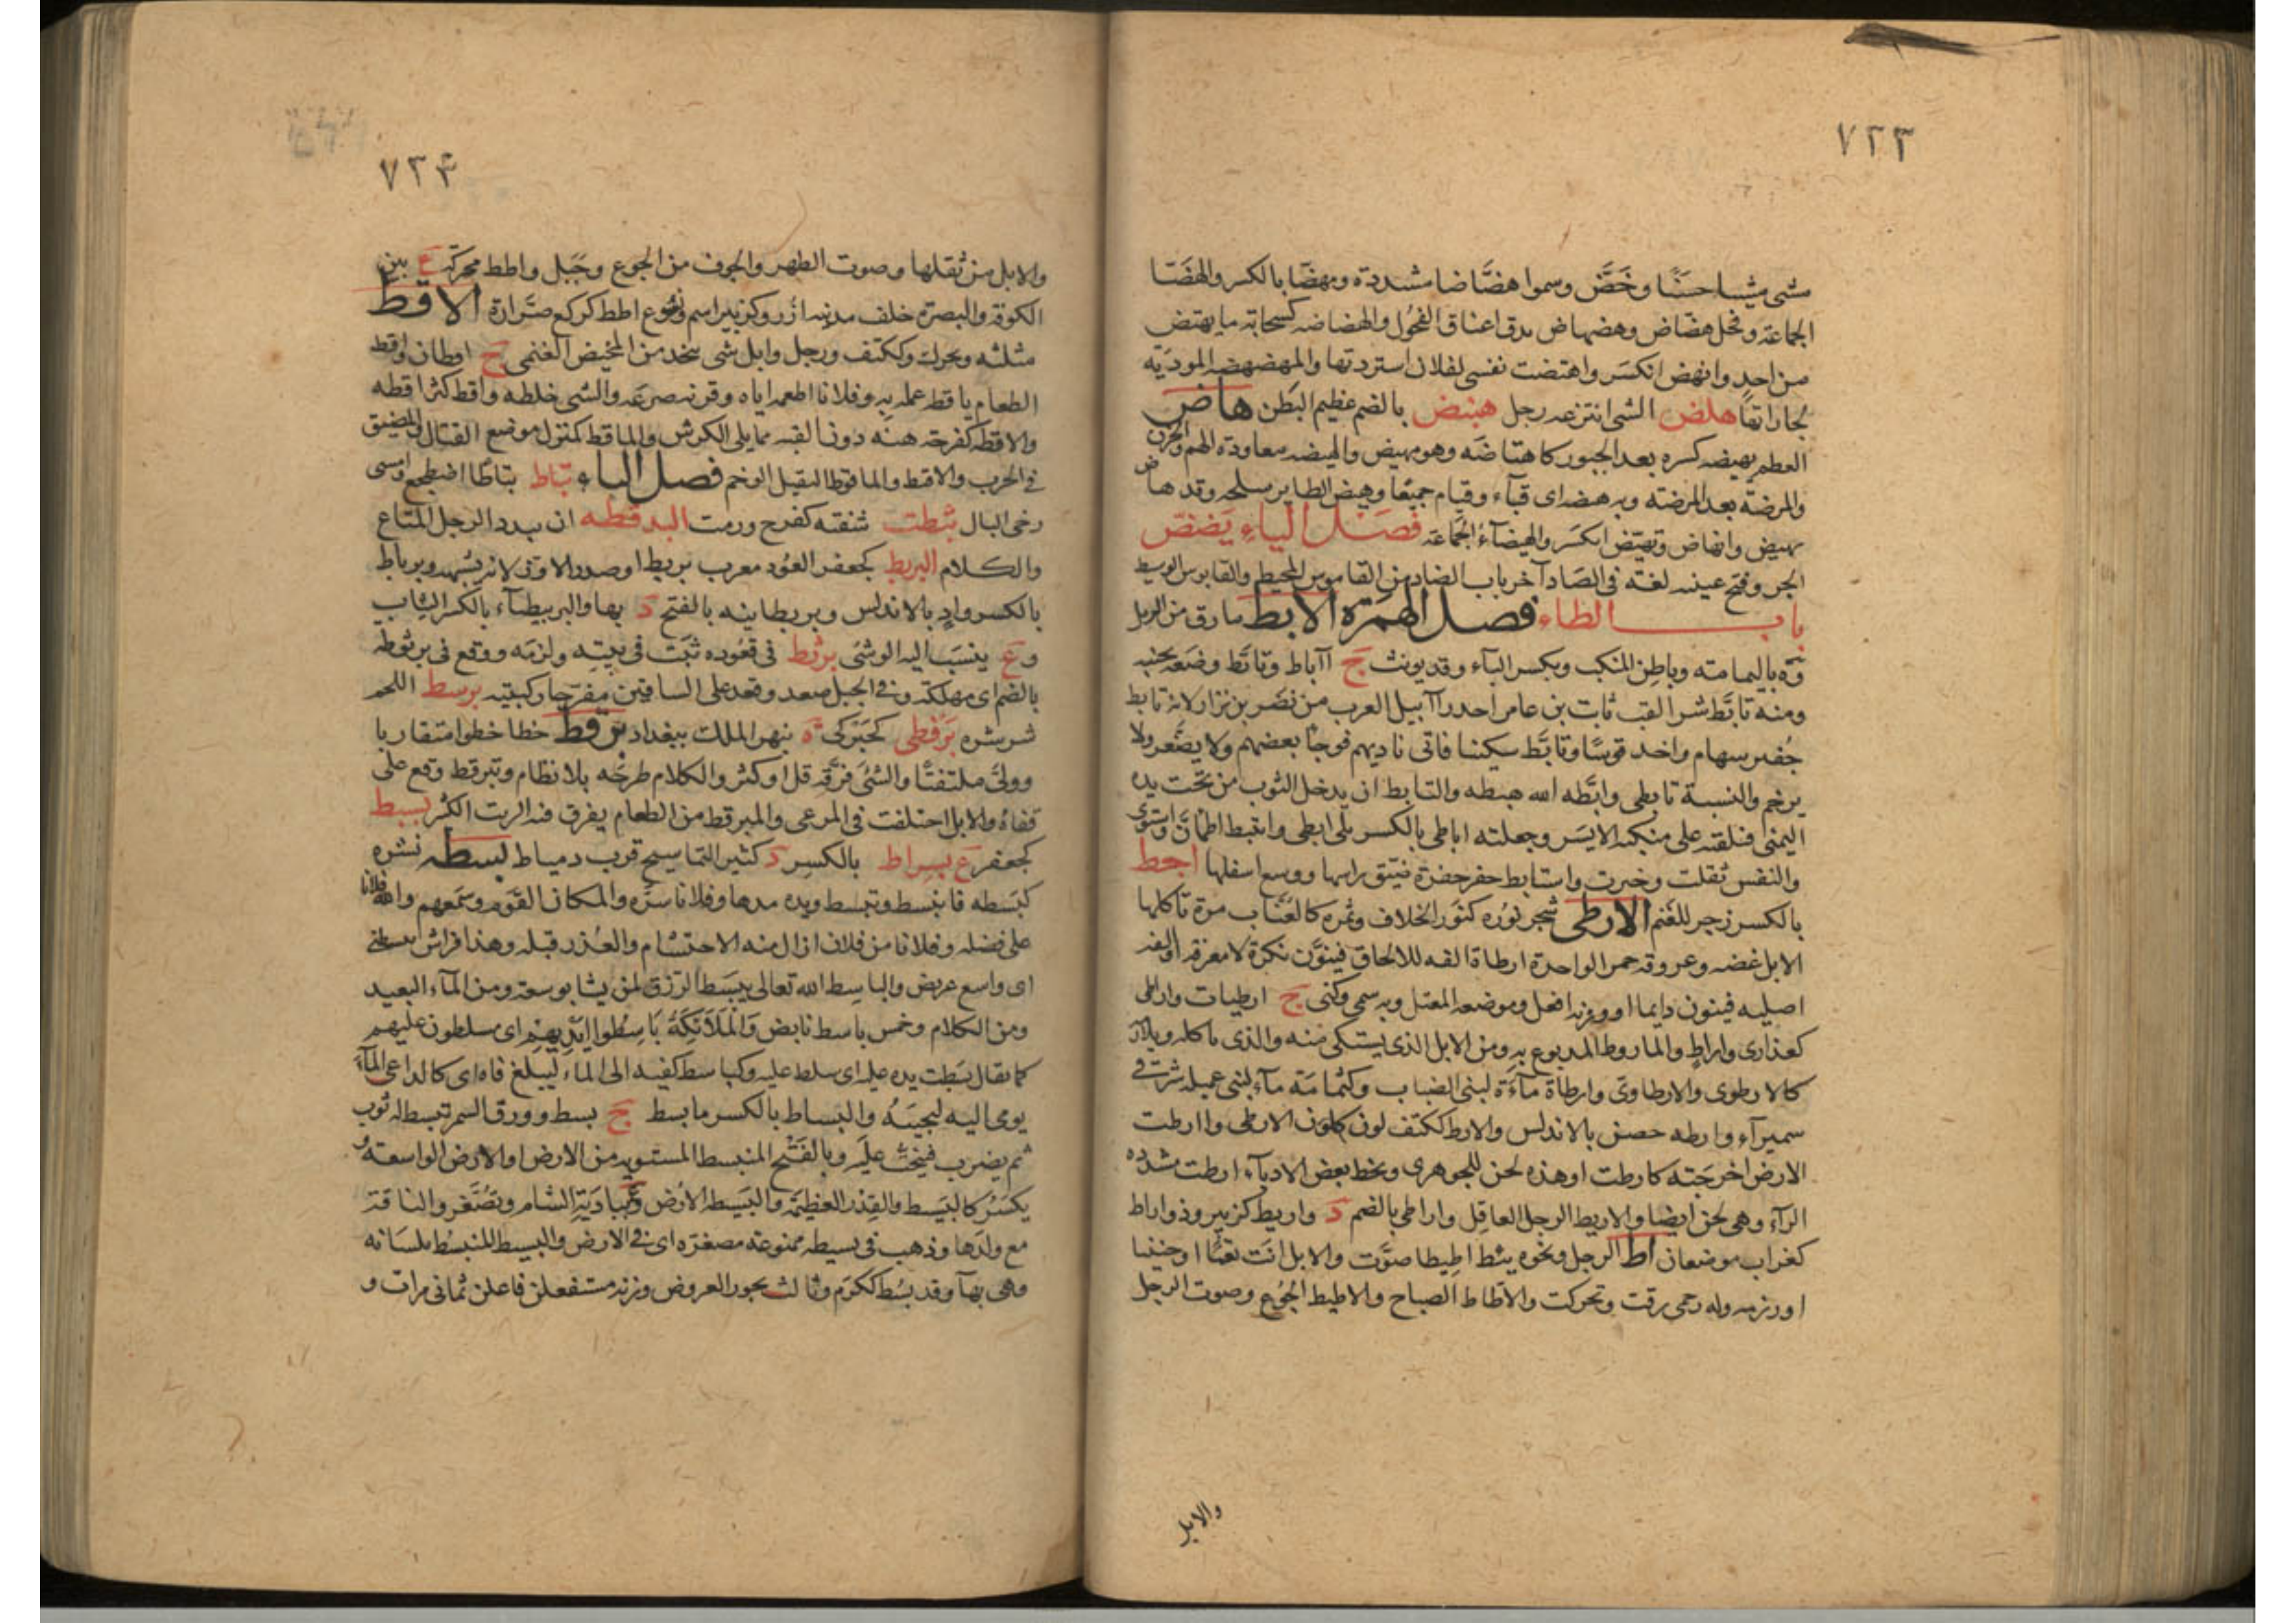 ٧٢٣
مشى مشيا حسنا وخَضَّ وسموا هضّاضا مشددة ومهضّا بالكسر والهضّا
الجماعة وفحل هضّاض وهضهاض يدق اعناق الفحول والهضاضه كسحابة ما يهتض
من احد وانهض انكسر واهتضت نفسى لفلان استردتها والمهضهضه الموديّة
لجاراتها هلض الشى انتزعه رجل هنبض بالضم عظيم البطن هاض
العظم يهيضه كسره بعد الجبور كاهتاضه وهو مهيض والهيضه معاودة الهم والحزن
والمرضة بعد المرضة وبه هيضه اى قيآء وقيام جميعًا وهيض الطاير سلحه وقد هاض
يهيض وانهاض وتهيّض انكسر والهيضآء الجماعة فصل الياء يضّض
الجرو فتح عينيه لغة فى الصاد آخر باب الضاد من القاموس المحيط والقابوس الوسيط
باب الطاء فصل الهمزة الابط ما رق من الرمل
وة باليمامة وباطن المنكب وبكسر البآء وقد يونث ج آاباط وتابّط وضعه بجنبه
ومنه تابّط شرا لقب ثابت بن عامر احد رآابيل العرب من نضر بن نزار لانه تابط
جفير سهام واخد قوسًا وتابّط سكينا فاتى ناديهم فوجا بعضهم ولا يصّغر ولا
يرخم والنسبة تابطى وابّطه الله هبطه والتابط ان يدخل الثوب من تحت يده
اليمنى فيلقيه على منكبه الايسر وجعلته اباطى بالكسر يلى ابطى وايتبط اطمأنّ واستوى
والنفس ثقلت وخبرت واستابط حفر حفرة ضيّق راسها ووسع اسفلها اجط
بالكسر زجر للغنم الارطى شجر نوره كنور الخلاف وثمره كالعنّاب مرة تاكلها
الابل غضه وعروقه حمر الواحدة ارطاة الفه للالحاق فينوّن نكرة لا معرفة او الفه
اصليه فينون دايما او وزنه افعل وموضعه المعتل وبه سمى وكنى ج ارطيات واراطى
كعذارى واراطٍ والماروط المدبوغ به ومن الابل الذى يشتكى منه والذى ياكله ويلازمه
كالارطوى والارطاوى وارطاة مآءة لبنى الضباب وكثمامة مآء لبنى عميله شرقى
سميرآء وارطه حصن بالاندلس والارط ككتف لون كلون الارطى واارطت
الارض اخرجته كارطت او هذه لحن للجوهرى وبخط بعض الادبآء ارطت مشدده
الرآء وهى لحن ايضا والاريط الرجل العاقل واراطى بالضم د واريط كزبير وذو اراط
كغراب موضعان اط الرجل ونحوه يئط اطيطا صوّت والابل انت تعبًا او حنينا
او رزمه وله رحمى رقت وتحركت والاطاط الصياح والاطيط الجوع وصوت الرحل
والابل
٧٢٤
والابل من ثقلها وصوت الظهر والجوف من الجوع وجبل واطط محركة ع بين
الكوفة والبصرة خلف مدينه ازر وكزبير اسم ونسُوع اطط كركع صرّارة الاقط
مثلثه ويحرك وككتف ورجل وابل شى يتخد من المخيض الغنمى ج اقطان واقط
الطعام ياقطه عمله به وفلانا اطعمه اياه وقرنه صرعه والشى خلطه واقط كثر اقطه
والاقطه كفرحة هنه دون القبه مما يلى الكرش والماقط كمنزل موضع القتال والمضيق
فى الحرب والاقط والماقوط الثقيل الوخم فصل الباء تبأط تبأطًا اضطجع وامسى
رخى البال بثطت شفته كفرح ورمت البدقطه ان يبدد الرجل المتاع
والكلام البربط كجعفر العود معرب بربط اى صدر الاوز لانه يشبهه وبرباط
بالكسر وادٍ بالاندلس وبربطانيه بالفتح د بها والبربيطآء بالكسر الثياب
وع ينسب اليه الوشى برثط فى قعوده ثبت فى بيته ولزمه ووقع فى برثوطه
بالضم اى مهلكة وفى الجبل صعد وقعد على الساقين مفرجا ركبتيه برسط اللحم
شرشره برفطى كحبركى ة بنهر الملك ببغداد برقط خطا خطوا متقاربا
وولّى ملتفتًا والشئ فرّقه قل او كثر والكلام طرحه بلا نظام وتبرقط وقع على
قفاه والابل اختلفت فى المرعى والمبرقط من الطعام يفرق فيه الزيت الكثير بسبط
كجعفر ع بسراط بالكسر د كثير التماسيح قرب دمياط بسطه نشره
كبسّطه فانبسط وتبسط ويده مدها وفلانا سرّه والمكان القوم وسعهم والله فلانا
على فضله وفلانا من فلان ازال منه الاحتشام والعذر قبله وهذا فراش يبسطنى
اى واسع عريض والباسط الله تعالى يبسط الرزق لمن يشا يوسعه ومن المآء البعيد
ومن الكلام وخمس باسط نابض وَالْمَلَائِكَةُ بَاسِطُوا اَيْدِيهِمْ اى مسلطون عليهم
كما يقال بسطت يده عليه اى سلط عليه وكباسط كفيه الى المآء ليبلغ فاه اى كالداعى المآء
يومى اليه ليجيبه والبساط بالكسر ما بسط ج بسط وورق السمر تبسط له ثوب
ثم يضرب فينحت عليه وبالفتح المنبسط المستوية من الارض او الارض الواسعة و
يكسر كالبسيط والقدر العظيمة والبسيطه الارض وع ببادية الشام وتصّغر والناقة
مع ولدها وذهب فى بسيطه ممنوعة مصغره اى فى الارض والبسيط المنبسط بلسانه
وهى بهآ وقد بسط ككرم وثالث بحور العروض وزنه مستفعلن فاعلن ثمانى مرات و